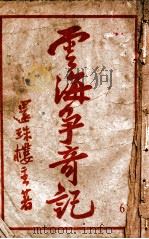 雲海爭奇記
還珠樓主著
6